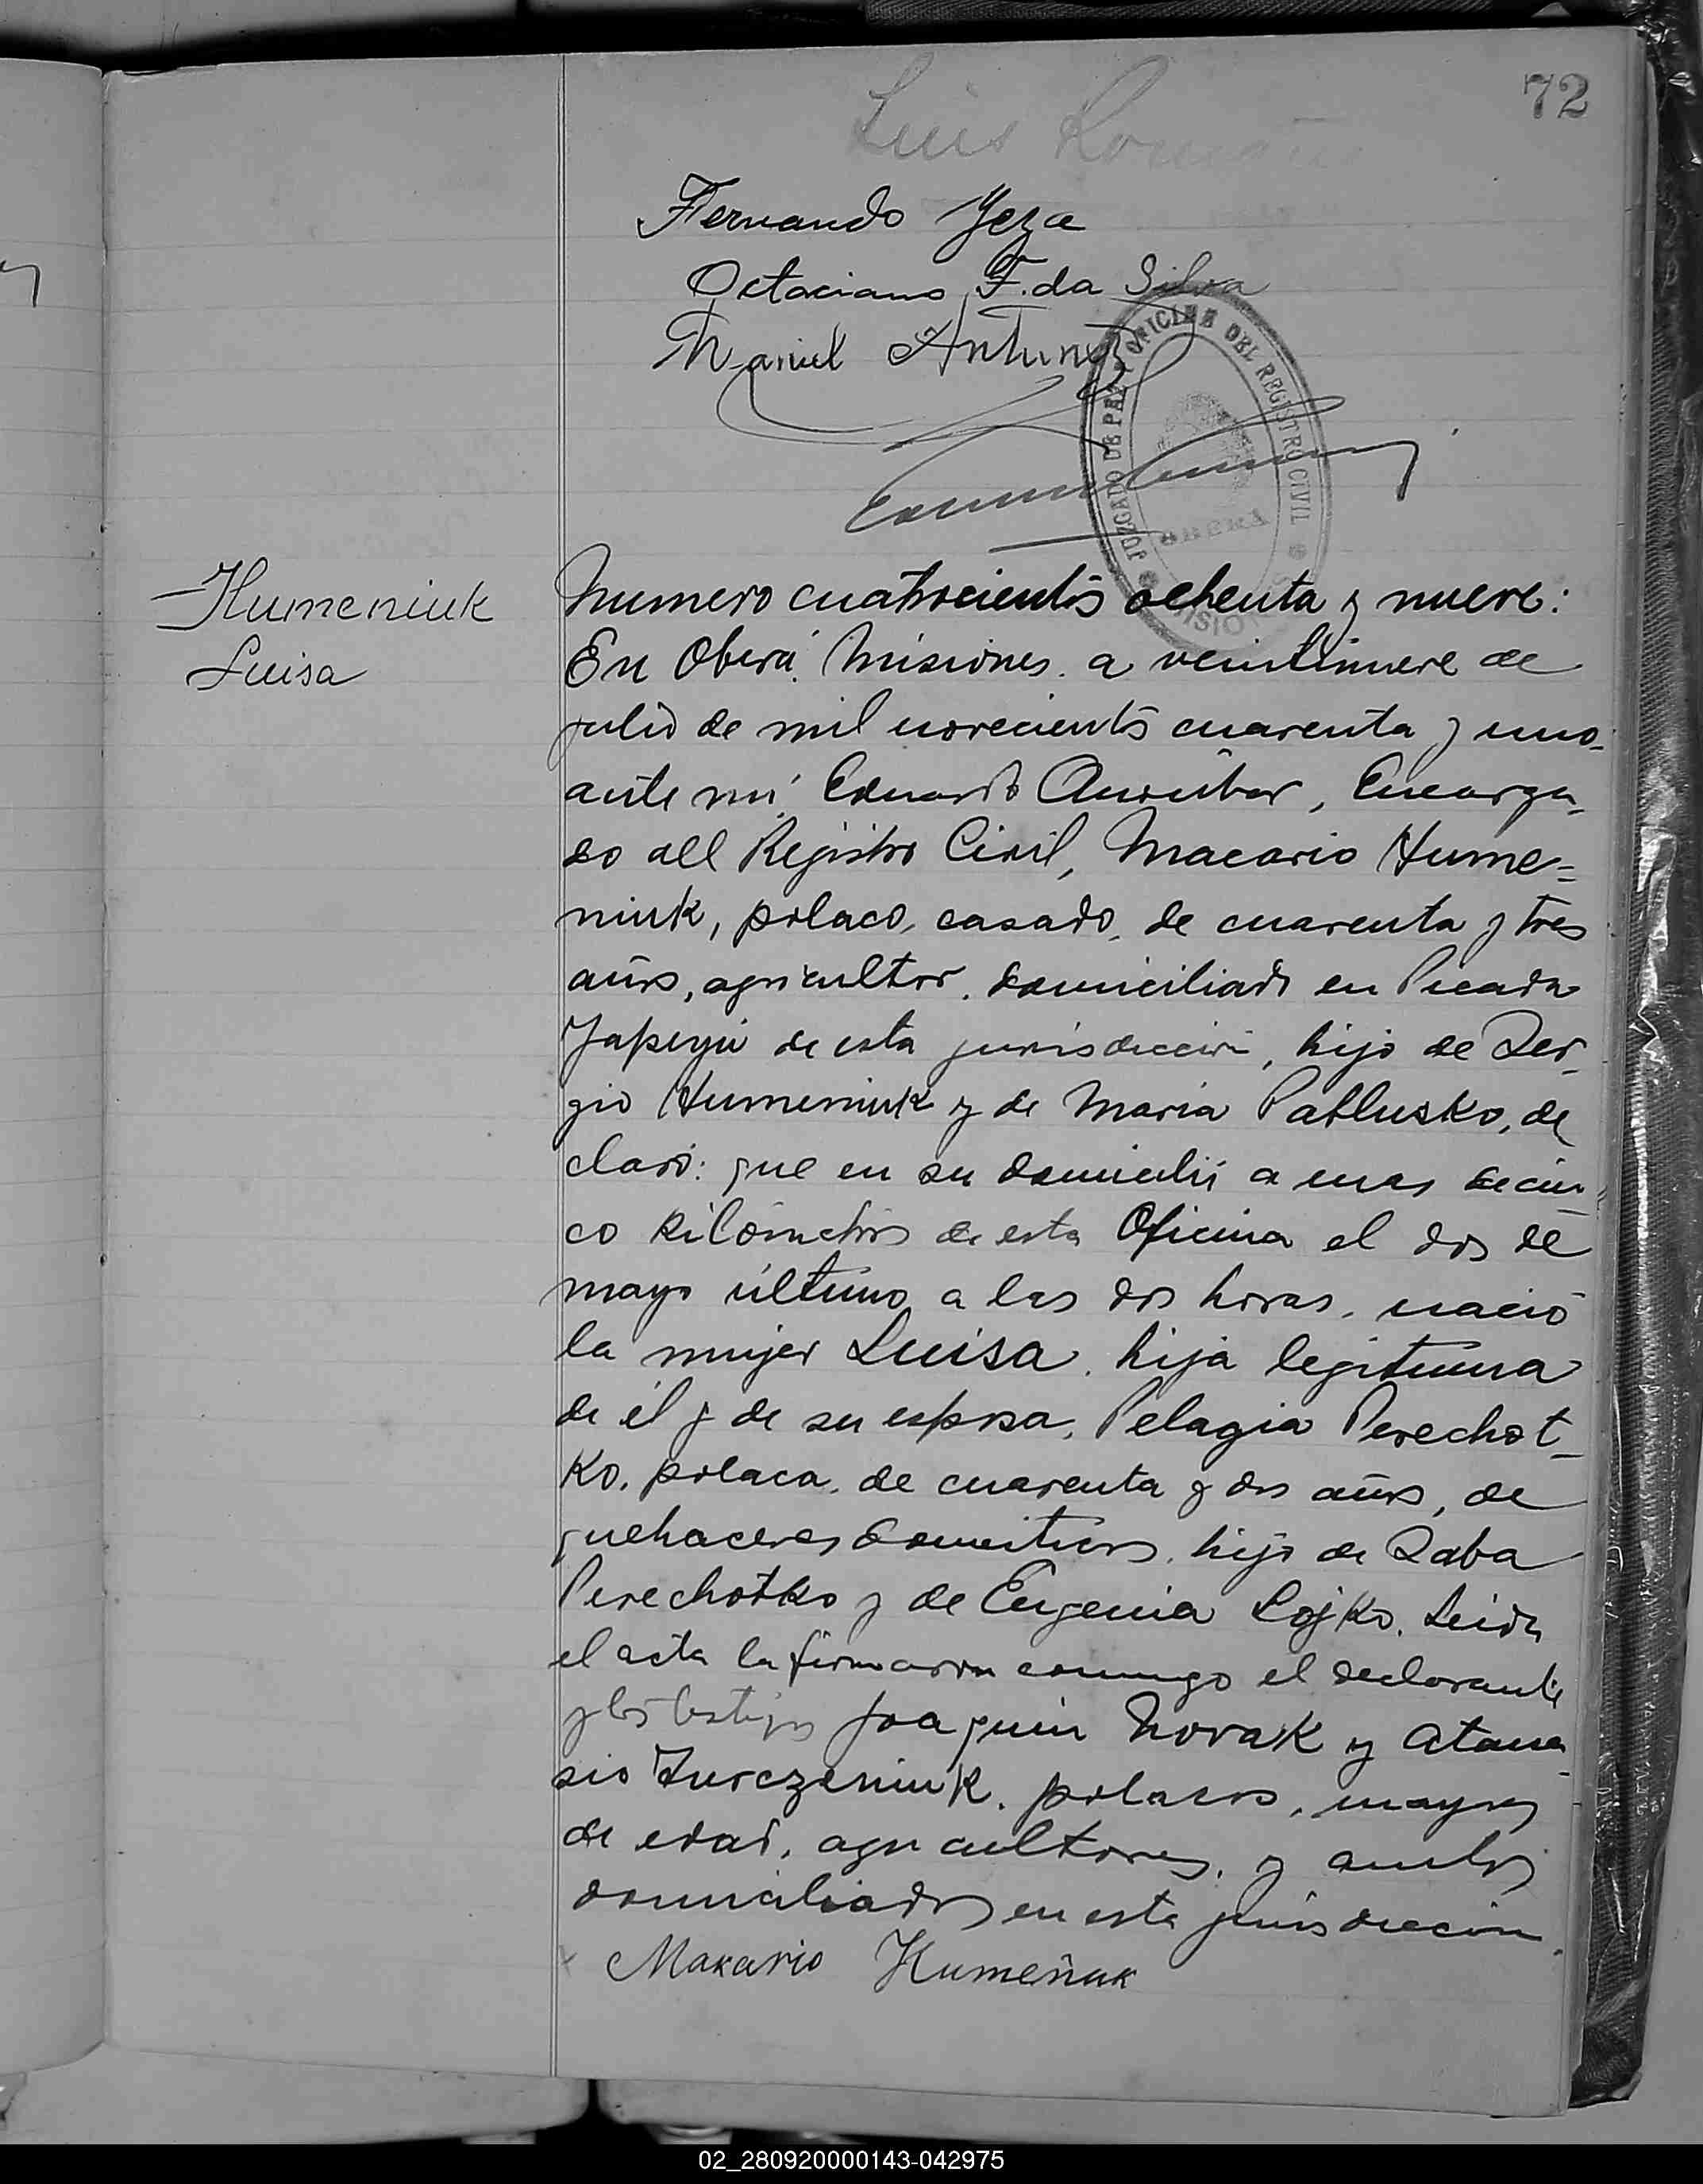 72
Luis
Fernando Yeza
Octaciano F. da Silva
Manuel Antunez
JUZGADO DE PAZ Y OFICINA DEL REGISTRO CIVIL
OBERA
MISIONES
Humeniuk
Luisa
Numero cuatrocientos ochenta y nueve:
En Oberá, Misiones, a veintinueve de
julio de mil novecientos cuarenta y uno,
ante mi, Eduardo, Encarga-
do del Registro Civil, Macario Hume=
niuk, polaco, casado, de cuarenta y tres
años, agricultor, domiciliado en Picada
Yapeyú de esta jurisdicción, hijo de Ser-
gio Humeniuk y de Maria Pablusko, de-
claró: que en su domicilio a unos de cin=
co kilómetros de esta Oficina el dos de
mayo último a las dos horas, nació
la mujer Luisa, hija legitima
de él y de su esposa, Pelagia Perechot-
ko, polaca, de cuarenta y dos años, de
quehaceres domesticos, hija de Saba
Perechotko y de Eugenia Lojko. Leida
el acta la firmaron conmigo el declarante
y los testigos Joaquin Novak y Atana-
sio Jurczeniuk, polacos, mayores
de edad, agricultores, y ambos
domiciliados en esta jurisdiccion.
Makario Humeñuk
02_280920000143-042975